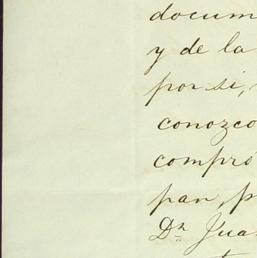 docum
y de la
por si,
conozco
compró
pan, p
Dn Jua